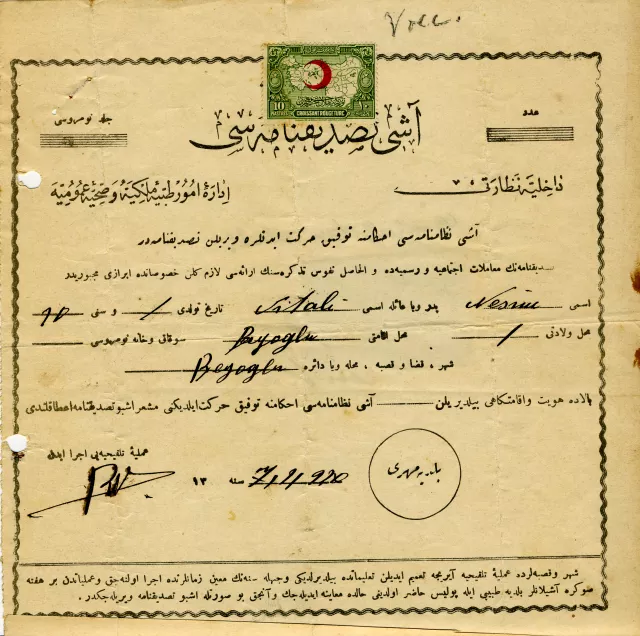 Vacc.
10 ١٠
CROISSANT ROUGE TURC
جلد نومروسی
عدد
آشی تصدیقنامه‌سی
داخلیه نظارتی
ادارۀ امور طبیۀ ملکیه و صحیۀ عمومیه
آشی نظامنامه‌سی احکامنه توفیق حرکت ایدنلره ویریلن تصدیقنامه‌در
تصدیقنامه‌نك معاملات اجتماعیه و رسمیه‌ده و الحاصل نفوس تذکره‌سنك ارائه‌سی لازم کلن خصوصاتده ابرازی مجبوریدر
اسمی Nesim پدر ویا عائله اسمی Vitali تاریخ تولدی / و سنی
محل ولادتی / محل اقامتی Beyoglu سوقاق و خانه نومروسی
شهر ، قضا و قصبه ، محله ویا دائره Beyoglu
بالاده هویت و اقامتکاهی بیلدیریلن آشی نظامنامه‌سی احکامنه توفیق حرکت ایلدیکنی مشعر اشبو تصدیقنامه اعطا قلندی
عملیۀ تلقیحیه‌یی اجرا ایدن
بلدیه مهری
سنه ١٣
شهر و قصبه‌لرده عملیۀ تلقیحیه آیریجه تعمیم ایدیلن تعلیماتده بیلدیرلدیکی وجهله سنه‌نك معین زمانلرنده اجرا اولنه‌جق و عملیاتدن بر هفته
صوکره آشیلانلر بلدیه طبیبی ایله پولیس حاضر اولدیغی حالده معاینه ایدیله‌جك و آنجق بو صورتله اشبو تصدیقنامه ویریله‌جکدر .